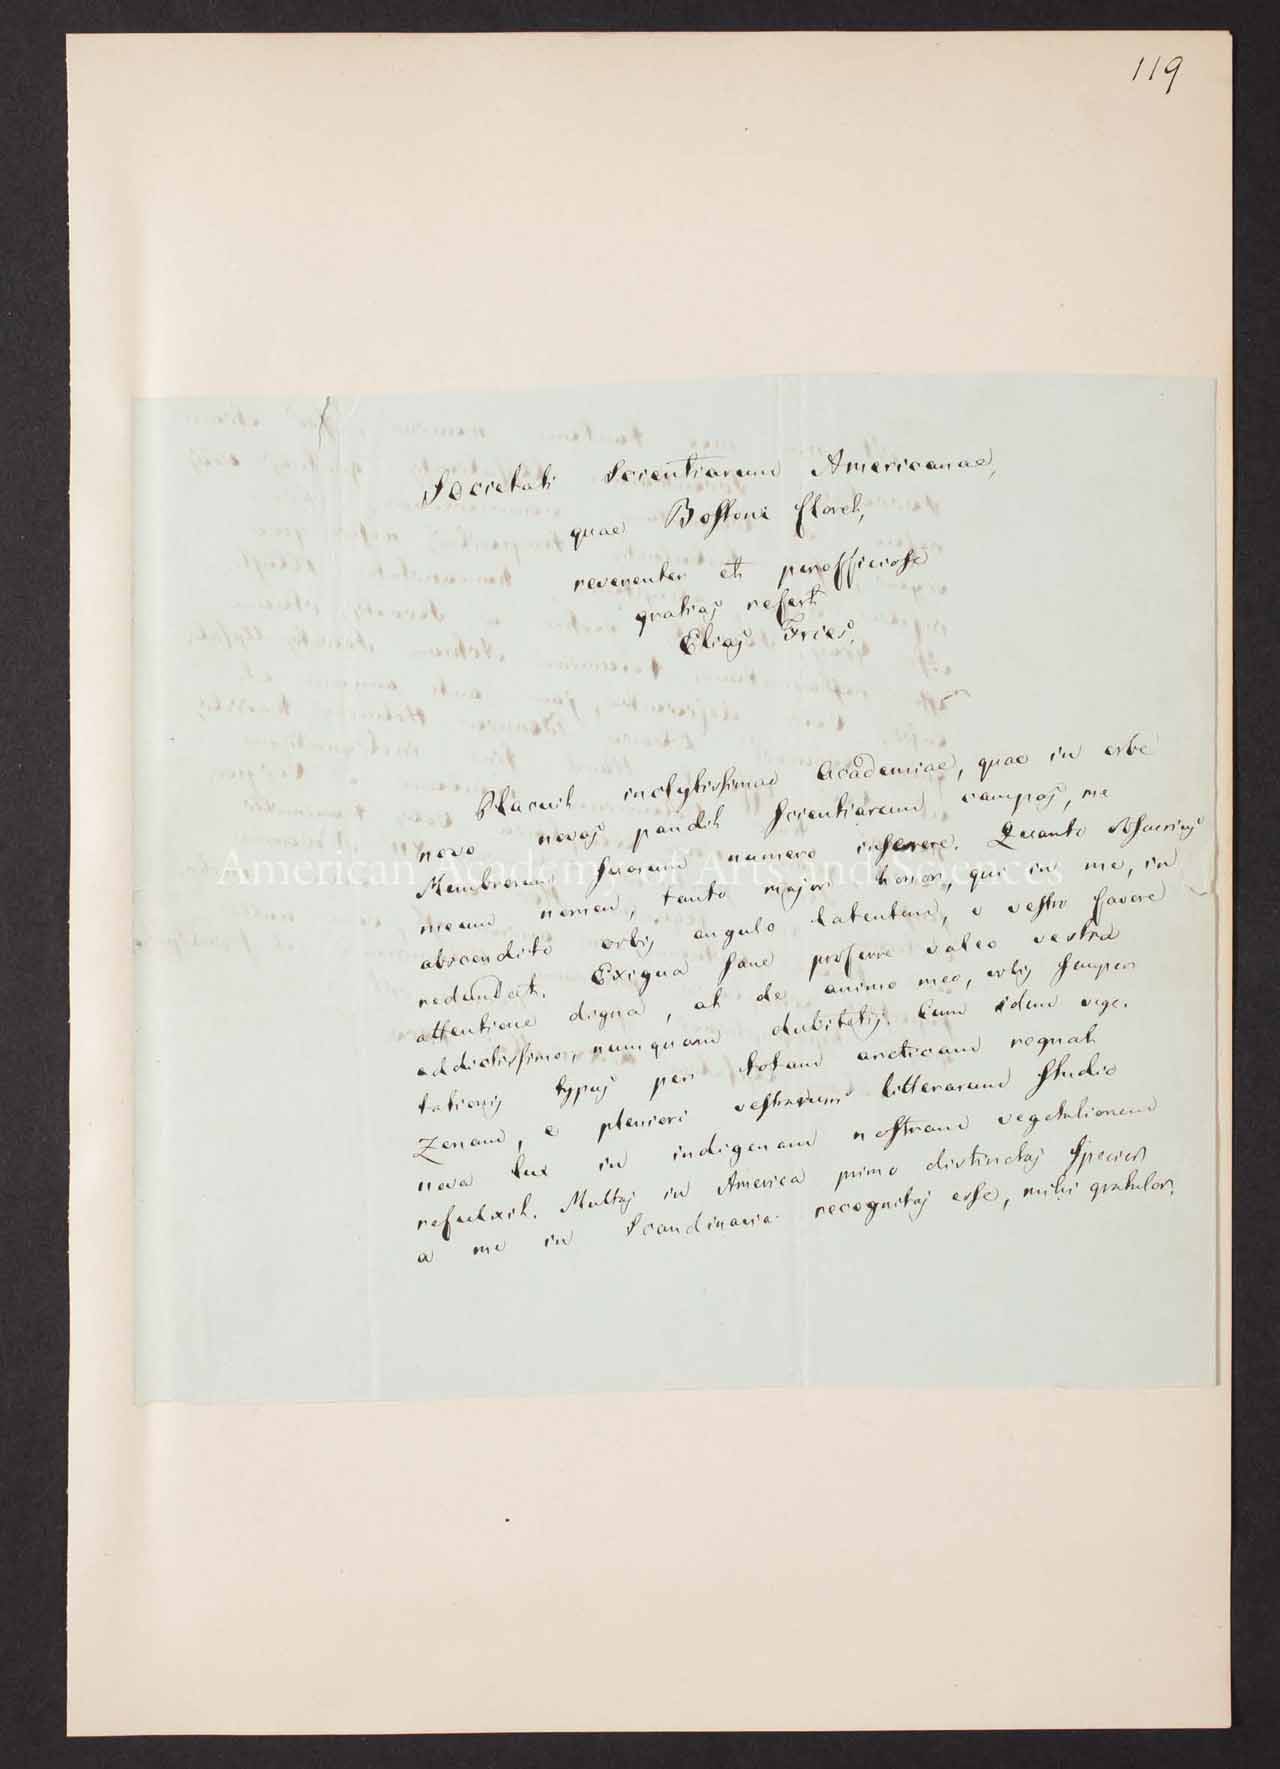 119
Societati Scientiarum Americanae,
quae Bostoni floret,
reverenter et perofficiose
gratias refert
Elias Fries.
Placuit inclytissimae Academiae, quae in orbe
novo novas pandit scientiarum campos, me
Membrorum suorum numero inserere. Quanto obscurius
meum nomen, tanto major honor, qui in me, in
abscondito orbis angulo latentem, e vestro favore
redundat. Exigua sane proferre valeo vestra
attentione digna, at de animo meo, orbis semper
addictissimo, numquam dubitetis. Cum idem vege-
tationis typus per totam arcticam regnat
Zonam, e pleniori vestrarum litterarum studio
nova lux in indigenam nostram vegetationem
refulxit. Multas in America primo distinctas species
a me in Scandinavia recognitas esse, mihi gratulor,
American Academy of Arts and Sciences